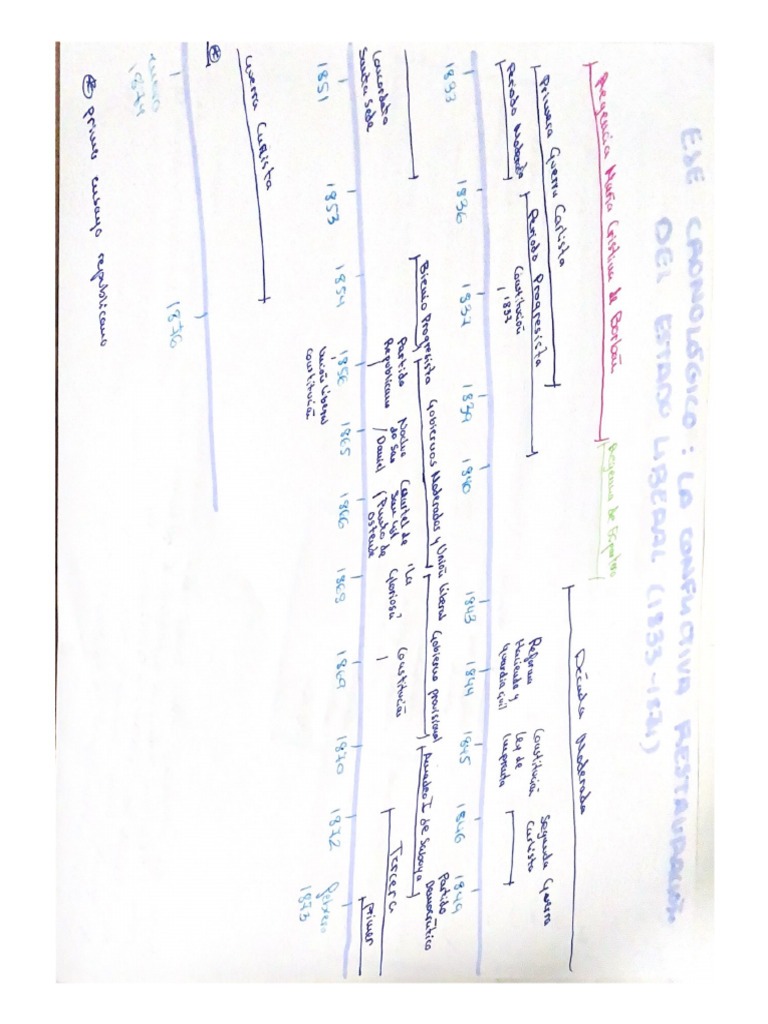 EJE CRONOLÓGICO: LA CONFLICTIVA RESTAURACIÓN
DEL ESTADO LIBERAL (1833-1874)
Regencia María Cristina de Borbón
Regencia de Espartero
Década Moderada
Primera Guerra Carlista
Período Moderado
Período Progresista
Constitución
1837
Reforma
Hacienda y
guardia civil
Constitución
Ley de
Imprenta
Segunda Guerra
Carlista
1833
1836
1837
1839
1840
1843
1844
1845
1846
1849
Partido
Democrático
Bienio Progresista
Gobiernos Moderados y Unión liberal
Gobierno provisional
Amadeo I de Saboya
Concordato
Santa Sede
Partido
Republicano
Noche
de San
Daniel
Cuartel de
San Gil
Punto de
Ostende
"La
Gloriosa"
Constitución
Tercera
primer
1851
1853
1854
1856
1865
1866
1868
1869
1870
1872
febrero
1873
Unión liberal
Constitución
Guerra Carlista
*
enero
1874
1876
* primer ensayo republicano